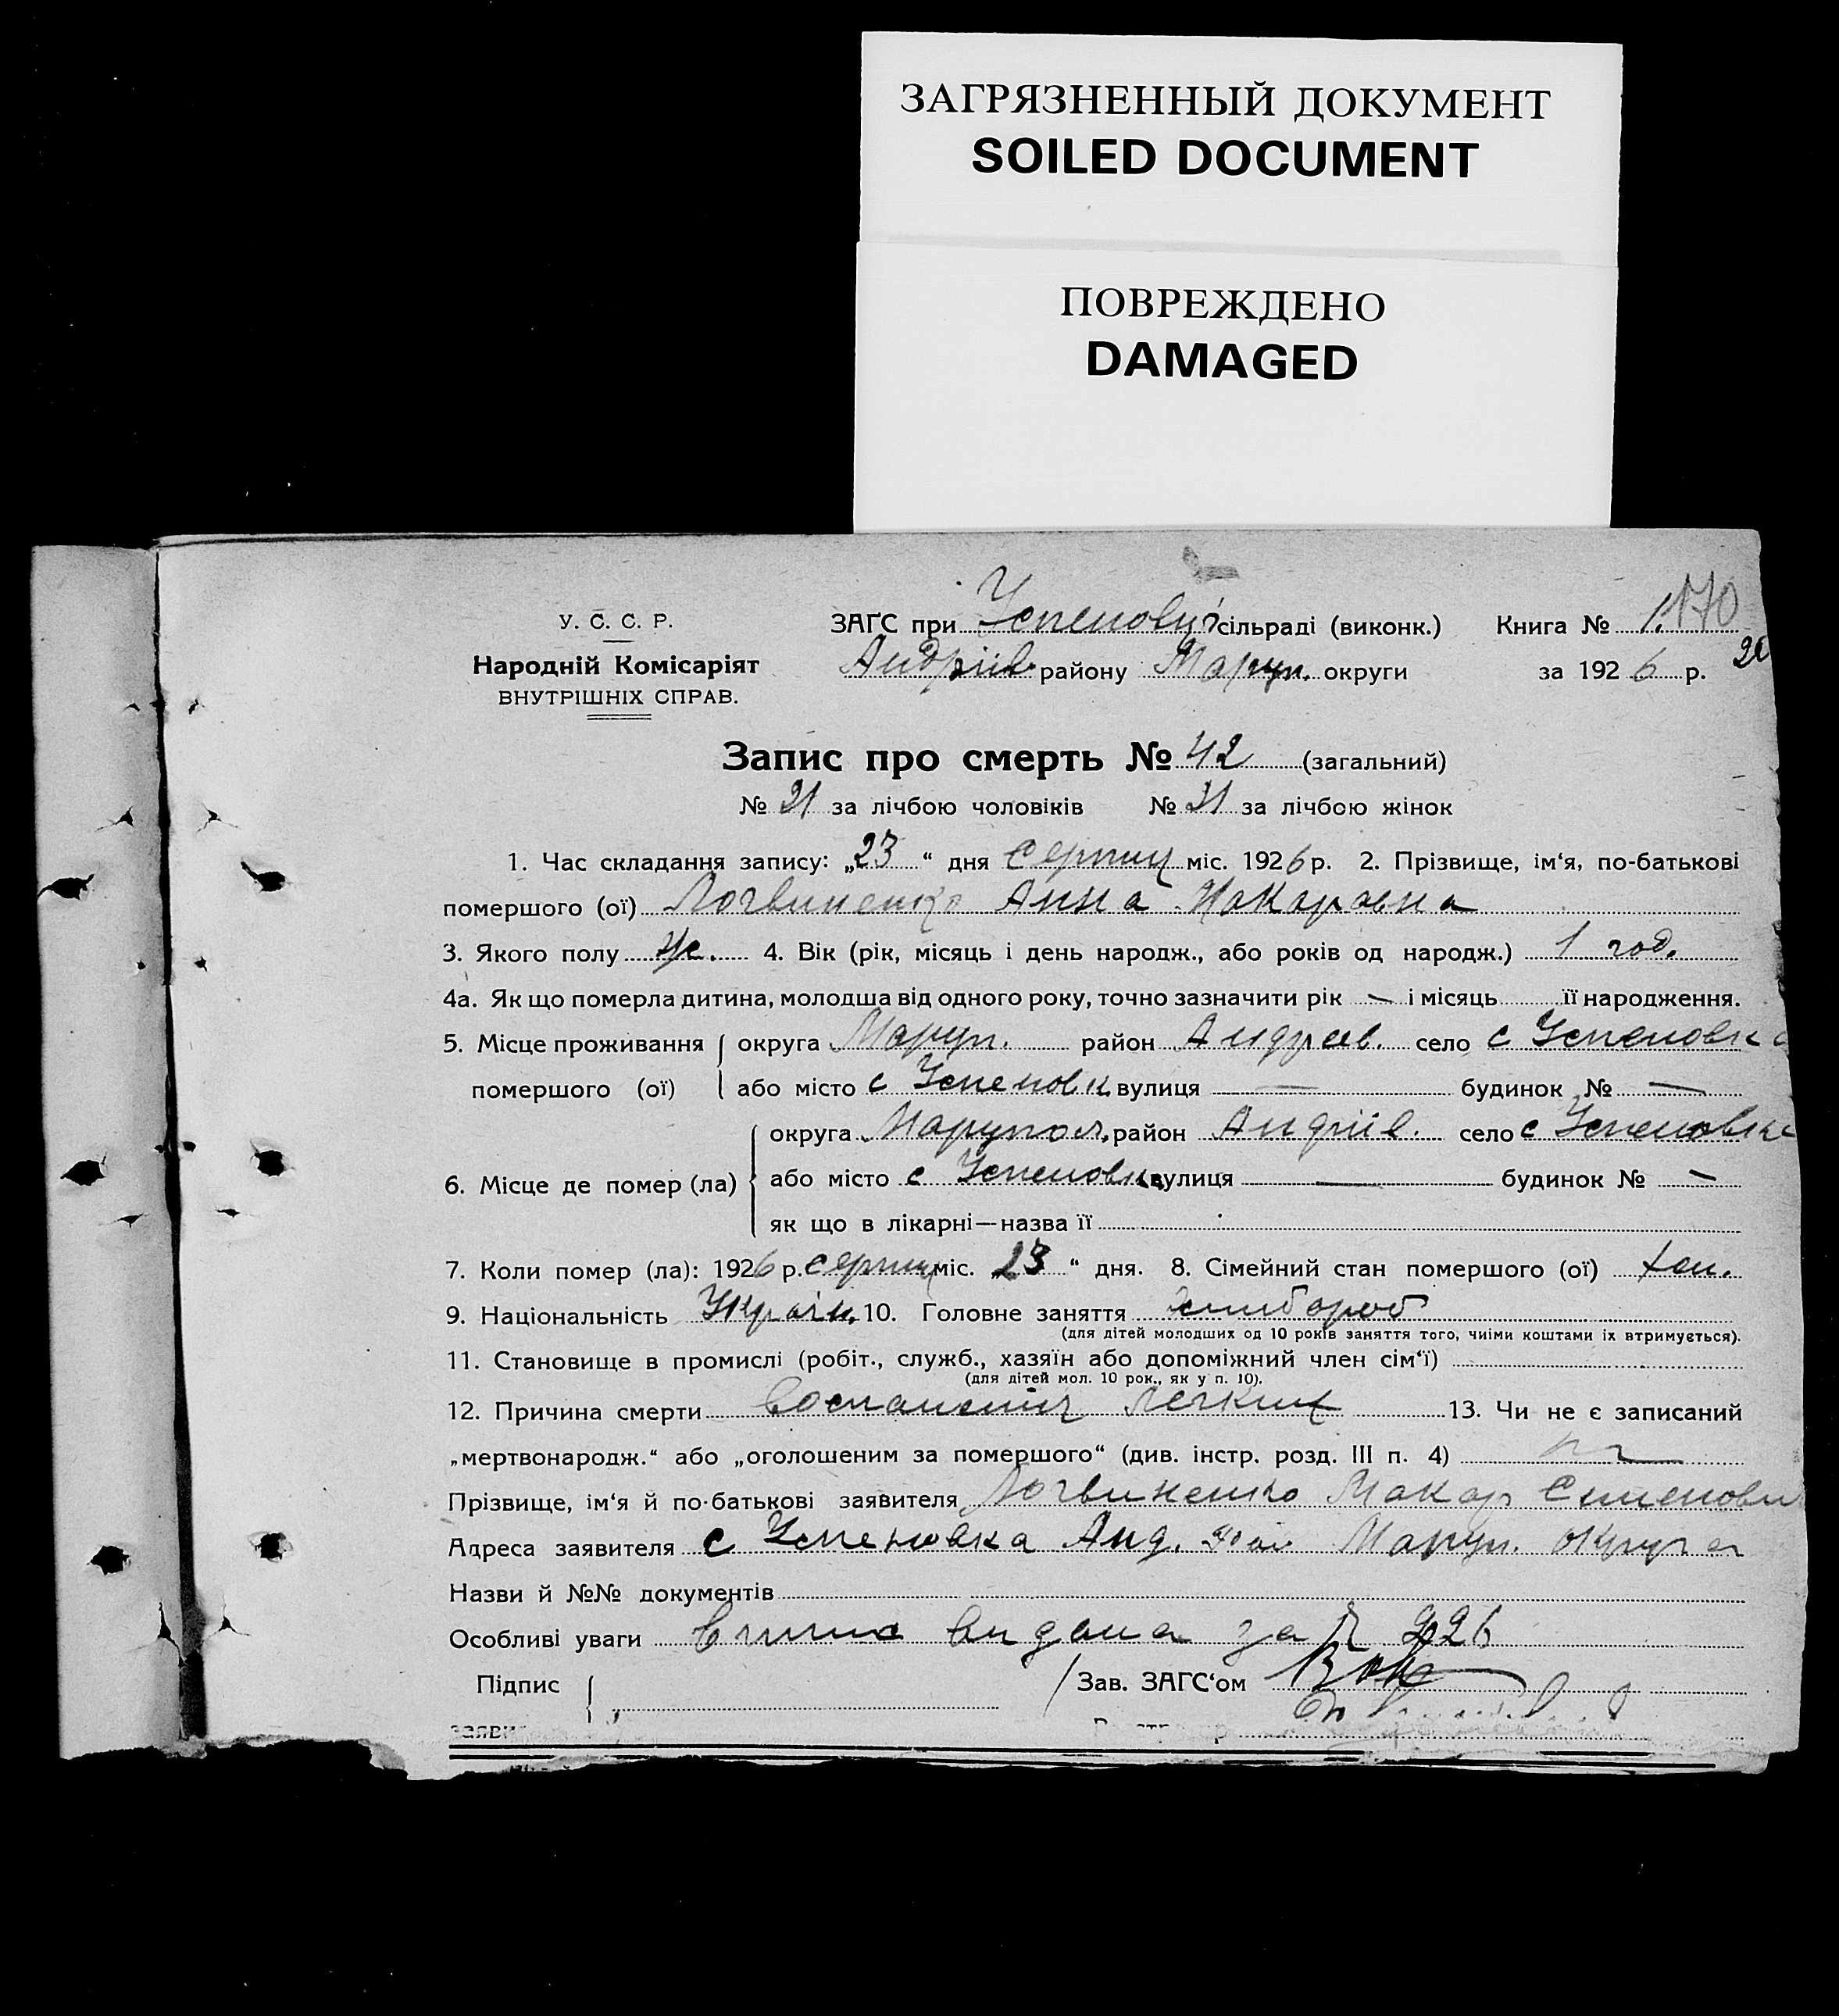 ЗАГРЯЗНЕННЫЙ ДОКУМЕНТ
SOILED DOCUMENT
ПОВРЕЖДЕНО
DAMAGED
У. С. С. Р.
Народній Комісаріят
ВНУТРІШНІХ СПРАВ.
ЗАГС при Успеновці сільраді (виконк.) Книга № 1. 170
Андріів. району Маруп. округи за 1926 р. 20
Запис про смерть № 42 (загальний)
№ 21 за лічбою чоловіків № 21 за лічбою жінок
1. Час складання запису: „23“ дня серпня міс. 1926 р. 2. Прізвище, ім‘я, по-батькові
помершого (ої) Логвиненко Анна Макаровна
3. Якого полу ж. 4. Вік (рік, місяць і день народж., або років од народж.) 1 год.
4а. Як що померла дитина, молодша від одного року, точно зазначити рік — і місяць її народження.
5. Місце проживання округа Маруп. район Андреев. село с Успеновка
помершого (ої) або місто с Успеновк вулиця — будинок № —
округа Марупол. район Андріів. село с Успеновка
6. Місце де помер (ла) або місто с Успеновка вулиця — будинок № —
як що в лікарні—назва її
7. Коли помер (ла): 1926 р. серпня міс. 23“ дня. 8. Сімейний стан помершого (ої)
9. Національність Україн. 10. Головне заняття хлибороб
(для дітей молодших од 10 років заняття того, чиїми коштами їх втримується).
11. Становище в промислі (робіт., служб., хазяїн або допоміжний член сім‘ї)
(для дітей мол. 10 рок., як у п. 10).
12. Причина смерти воспаления легких 13. Чи не є записаний
„мертвонародж.“ або „оголошеним за помершого“ (див. інстр. розд. III п. 4)
Прізвище, ім‘я й по-батькові заявителя Логвиненко Макар Семенови
Адреса заявителя с Успеновка Анд. рай Маруп. округа
Назви й №№ документів
Особливі уваги видана за № 926
Підпис Зав. ЗАГС‘ом
заяви